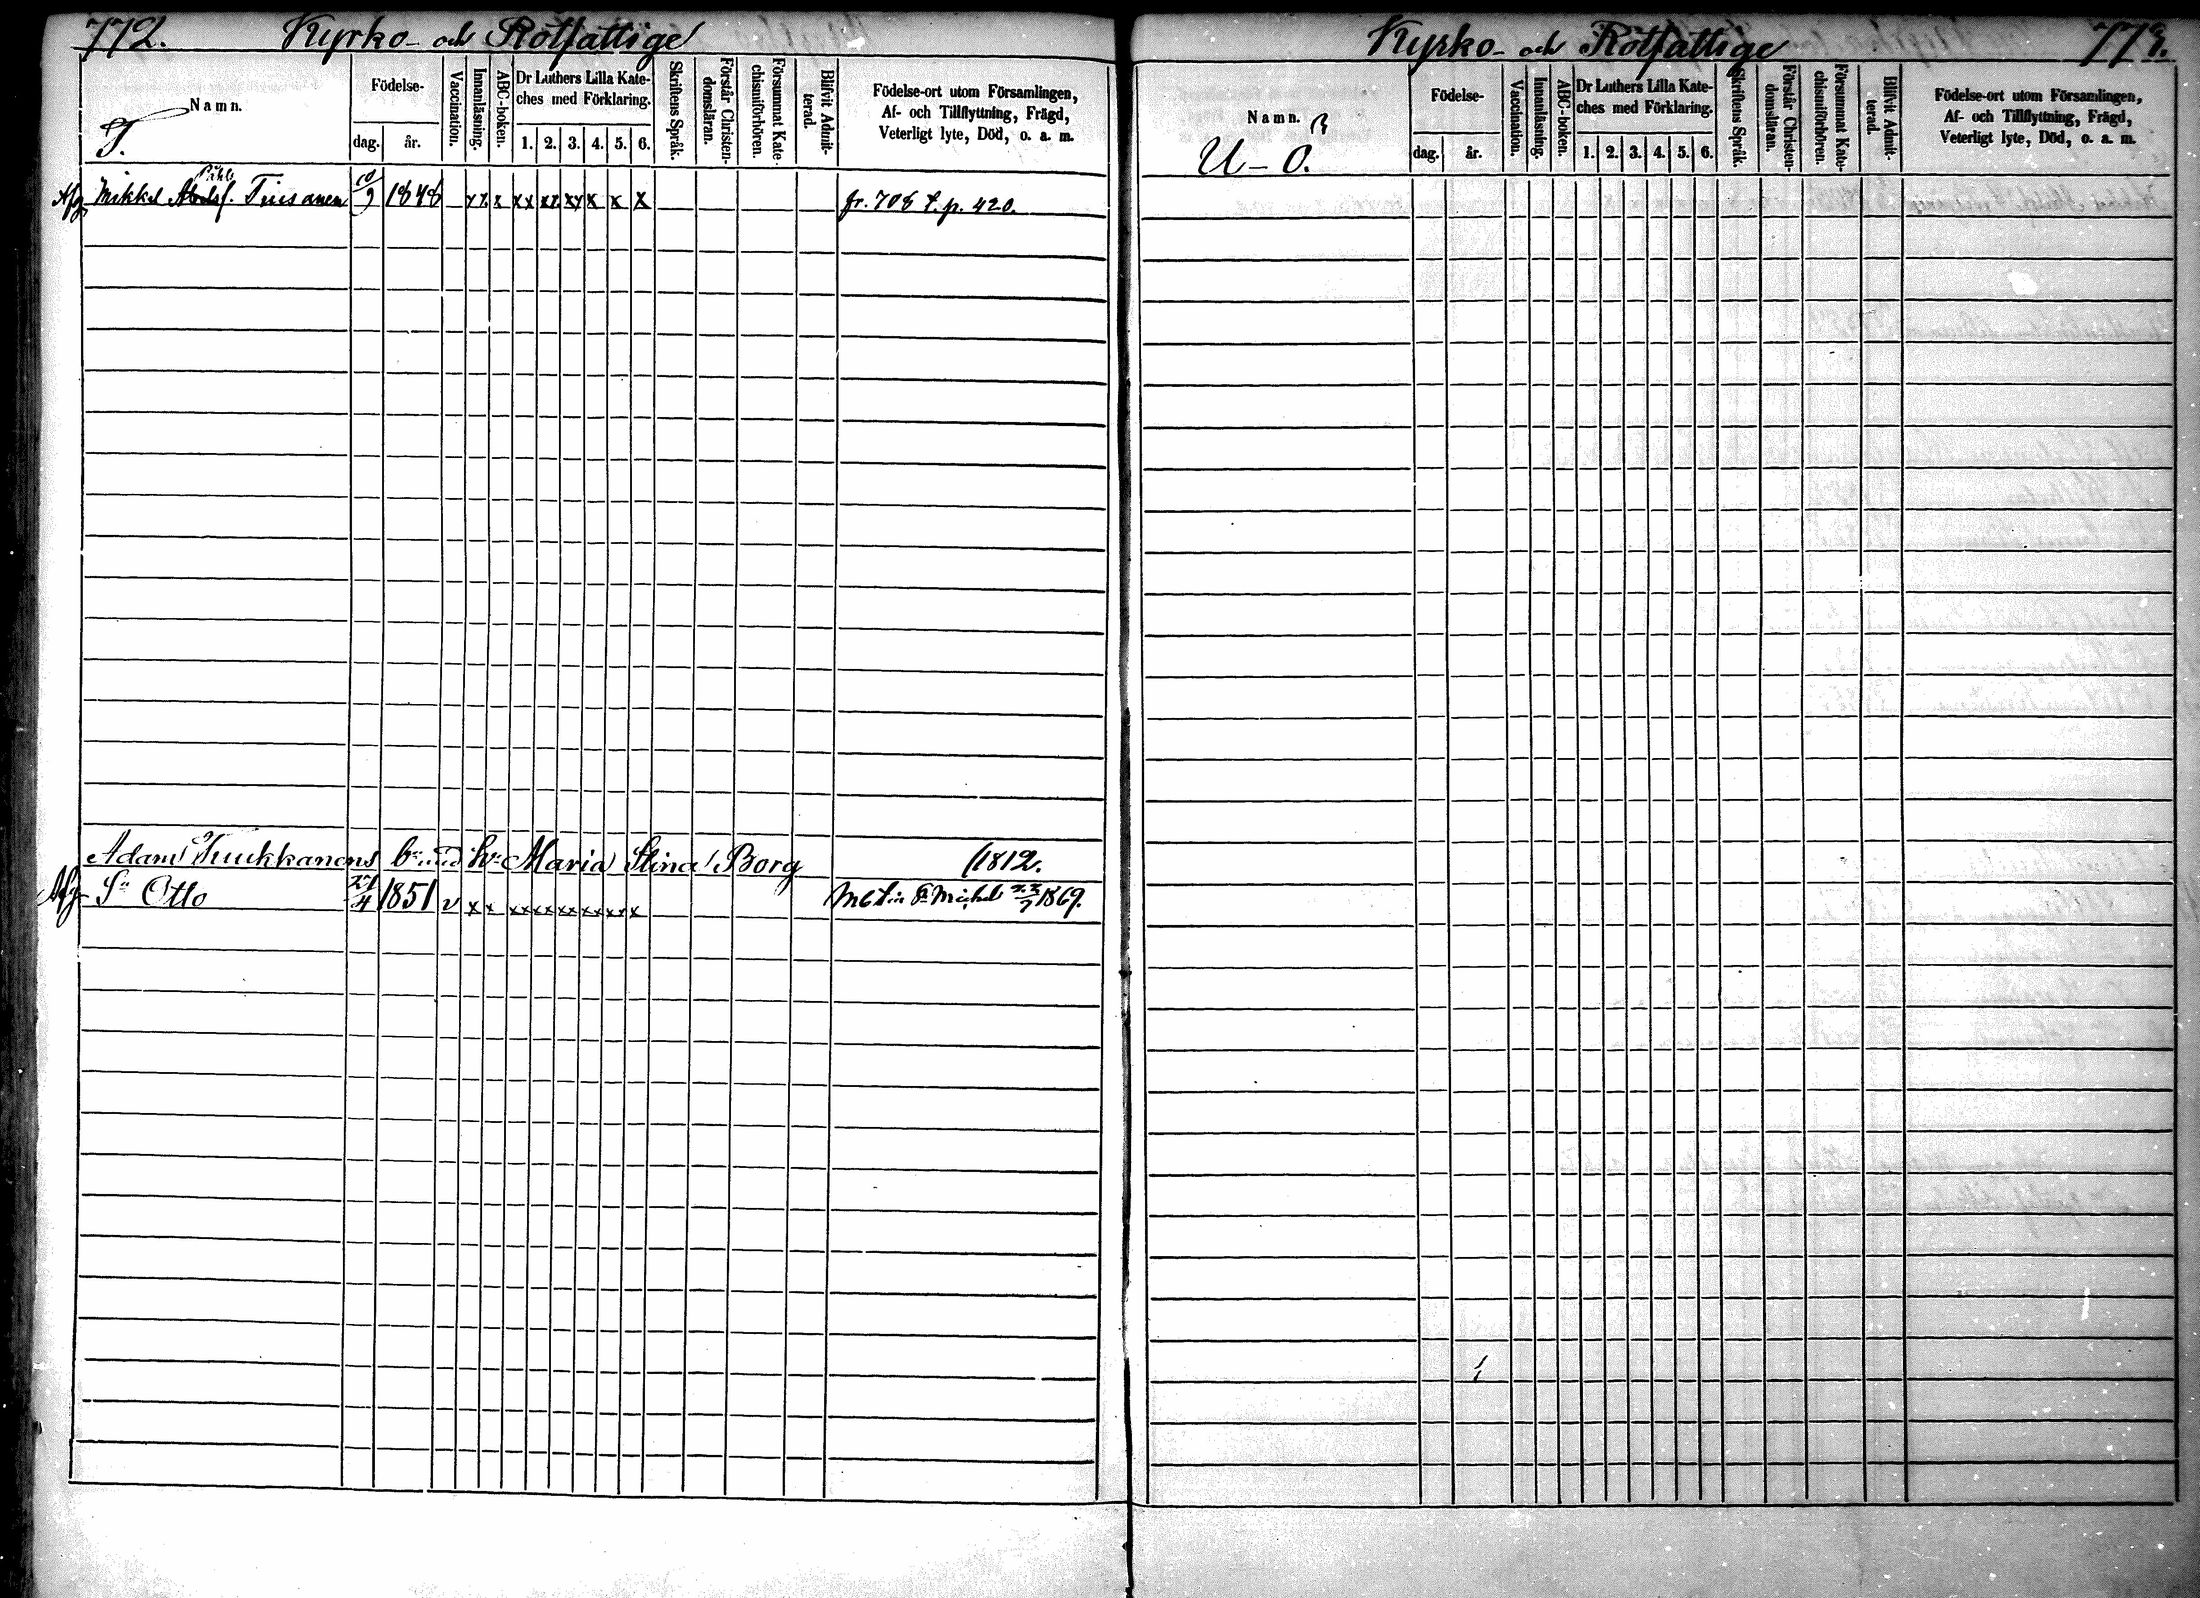 772. Kyrko- och Rotfattige
Namn.
T.
Födelse-
dag.
år.
Vaccination.
Innanläsning.
ABC-boken.
Dr Luthers Lilla Kate-
ches med Förklaring.
1. 2. 3. 4. 5. 6.
Skriftens Språk.
Förstår Christen-
domsläran.
Försummat Kate-
chismiförhören.
Blifvit Admit-
terad.
Födelse-ort utom Församlingen,
Af- och Tillflyttning, Frägd,
Veterligt lyte, Död, o. a. m.
Påhls
Afg Mikkel Abelsf. Tiusanen 10/9 1848 xx x xx xx xx x x x fr. 708 t. p. 420.
Adam Tuukkanens b:n med h:u Maria Stina Borg (1812.
Afg S:n Otto 21/4 1851 v x x xx xx xx xx xx x M b t in S:t Michel 23/7 1869.
Kyrko- och Rotfattige 773.
Namn.
U-Ö.
Födelse-
dag.
år.
Vaccination.
Innanläsning.
ABC-boken.
Dr Luthers Lilla Kate-
ches med Förklaring.
1. 2. 3. 4. 5. 6.
Skriftens Språk.
Förstår Christen-
domsläran.
Försummat Kate-
chismiförhören.
Blifvit Admit-
terad.
Födelse-ort utom Församlingen,
Af- och Tillflyttning, Frägd,
Veterligt lyte, Död, o. a. m.